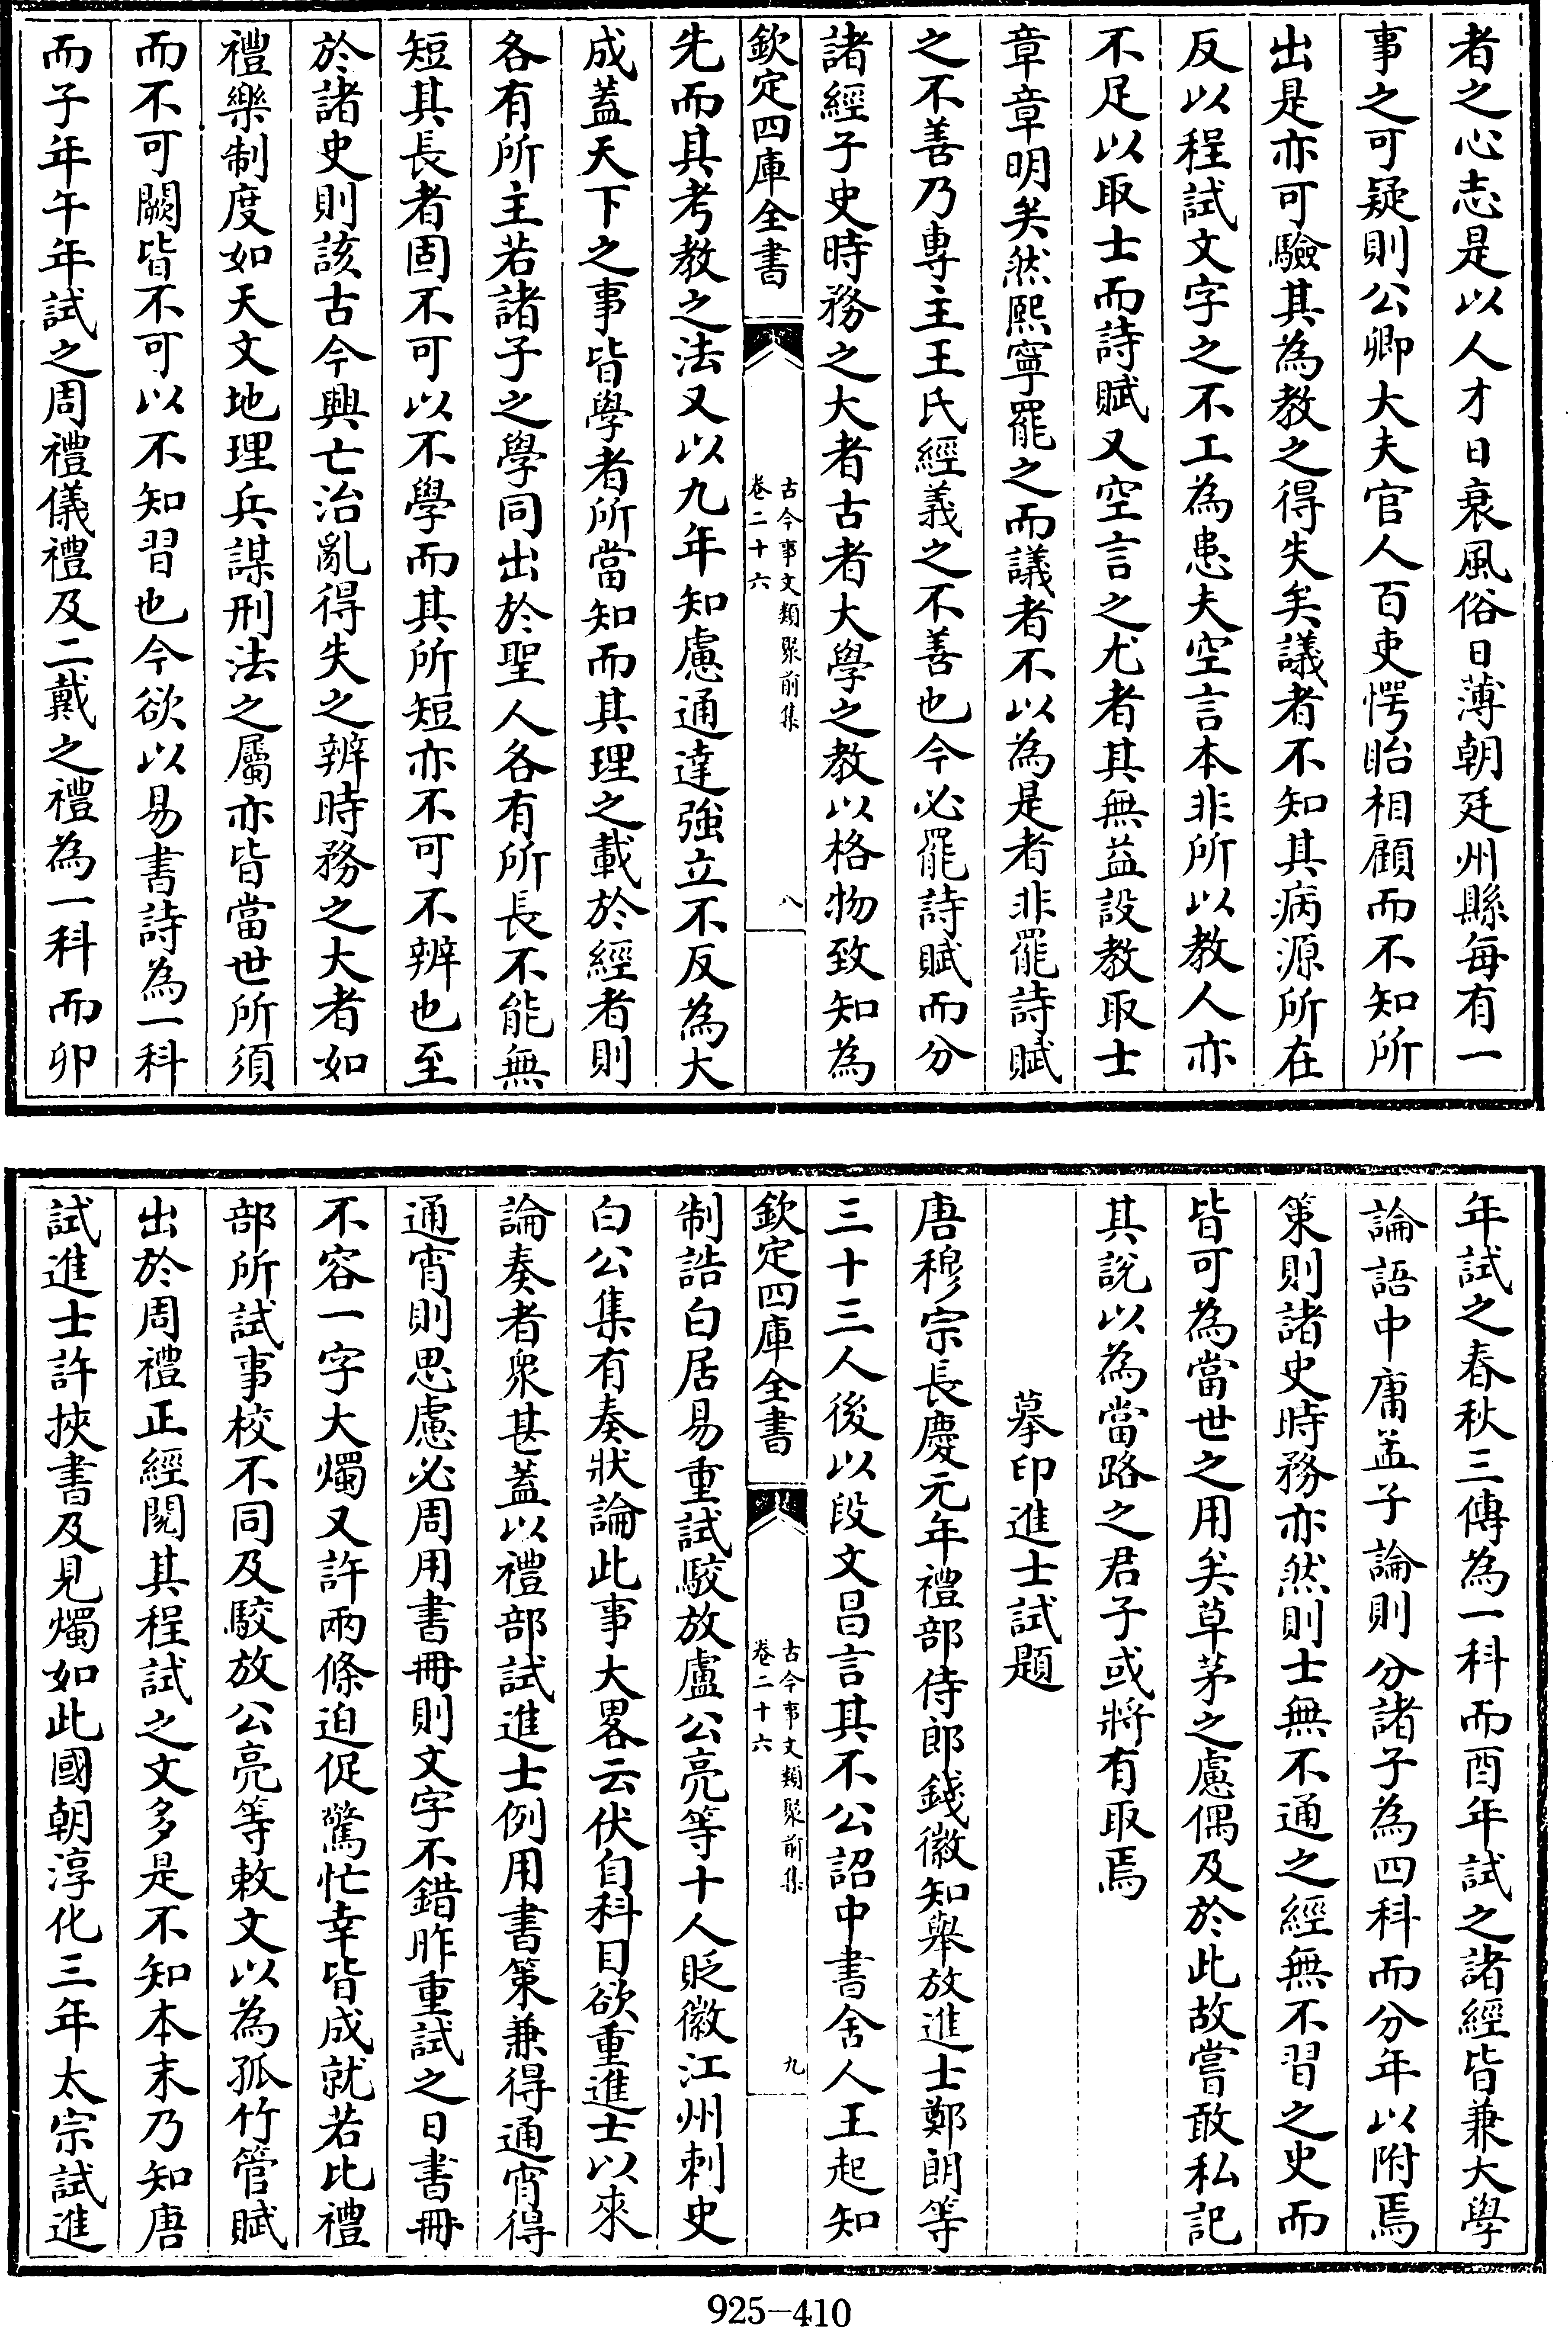 者之心志是以人才日衰風俗日薄朝廷州縣每有一
事之可疑則公卿大夫官人百吏愕眙相顧而不知所
出是亦可驗其為教之得失矣議者不知其病源所在
反以程試文字之不工為患夫空言本非所以教人亦
不足以取士而詩賦又空言之尤者其無益設教取士
章章明矣然熙寧罷之而議者不以為是者非罷詩賦
之不善乃專主王氏經義之不善也今必罷詩賦而分
諸經子史時務之大者古者大學之教以格物致知為
欽定四庫全書
古今事文類聚前集
卷二十六
八
先而其考教之法又以九年知慮通達強立不反為大
成蓋天下之事皆學者所當知而其理之載於經者則
各有所主若諸子之學同出於聖人各有所長不能無
短其長者固不可以不學而其所短亦不可不辨也至
於諸史則該古今興亡治亂得失之辨時務之大者如
禮樂制度如天文地理兵謀刑法之屬亦皆當世所須
而不可闕皆不可以不知習也今欲以易書詩為一科
而子年午年試之周禮儀禮及二戴之禮為一科而卯
年試之春秋三傳為一科而酉年試之諸經皆兼大學
論語中庸孟子論則分諸子為四科而分年以附焉
策則諸史時務亦然則士無不通之經無不習之史而
皆可為當世之用矣草茅之慮偶及於此故嘗敢私記
其說以為當路之君子或將有取焉
摹印進士試題
唐穆宗長慶元年禮部侍郎錢徽知舉放進士鄭朗等
三十三人後以段文昌言其不公詔中書舍人王起知
欽定四庫全書
古今事文類聚前集
卷二十六
九
制誥白居易重試駮放盧公亮等十人貶徽江州刺史
白公集有奏狀論此事大畧云伏自科目欲重進士以來
論奏者衆甚蓋以禮部試進士例用書策兼得通宵得
通宵則思慮必周用書冊則文字不錯昨重試之日書冊
不容一字大燭又許兩條迫促驚忙幸皆成就若比禮
部所試事校不同及駮放公亮等敕文以為孤竹管賦
出於周禮正經閱其程試之文多是不知本末乃知唐
試進士許挾書及見燭如此國朝淳化三年太宗試進
925-410